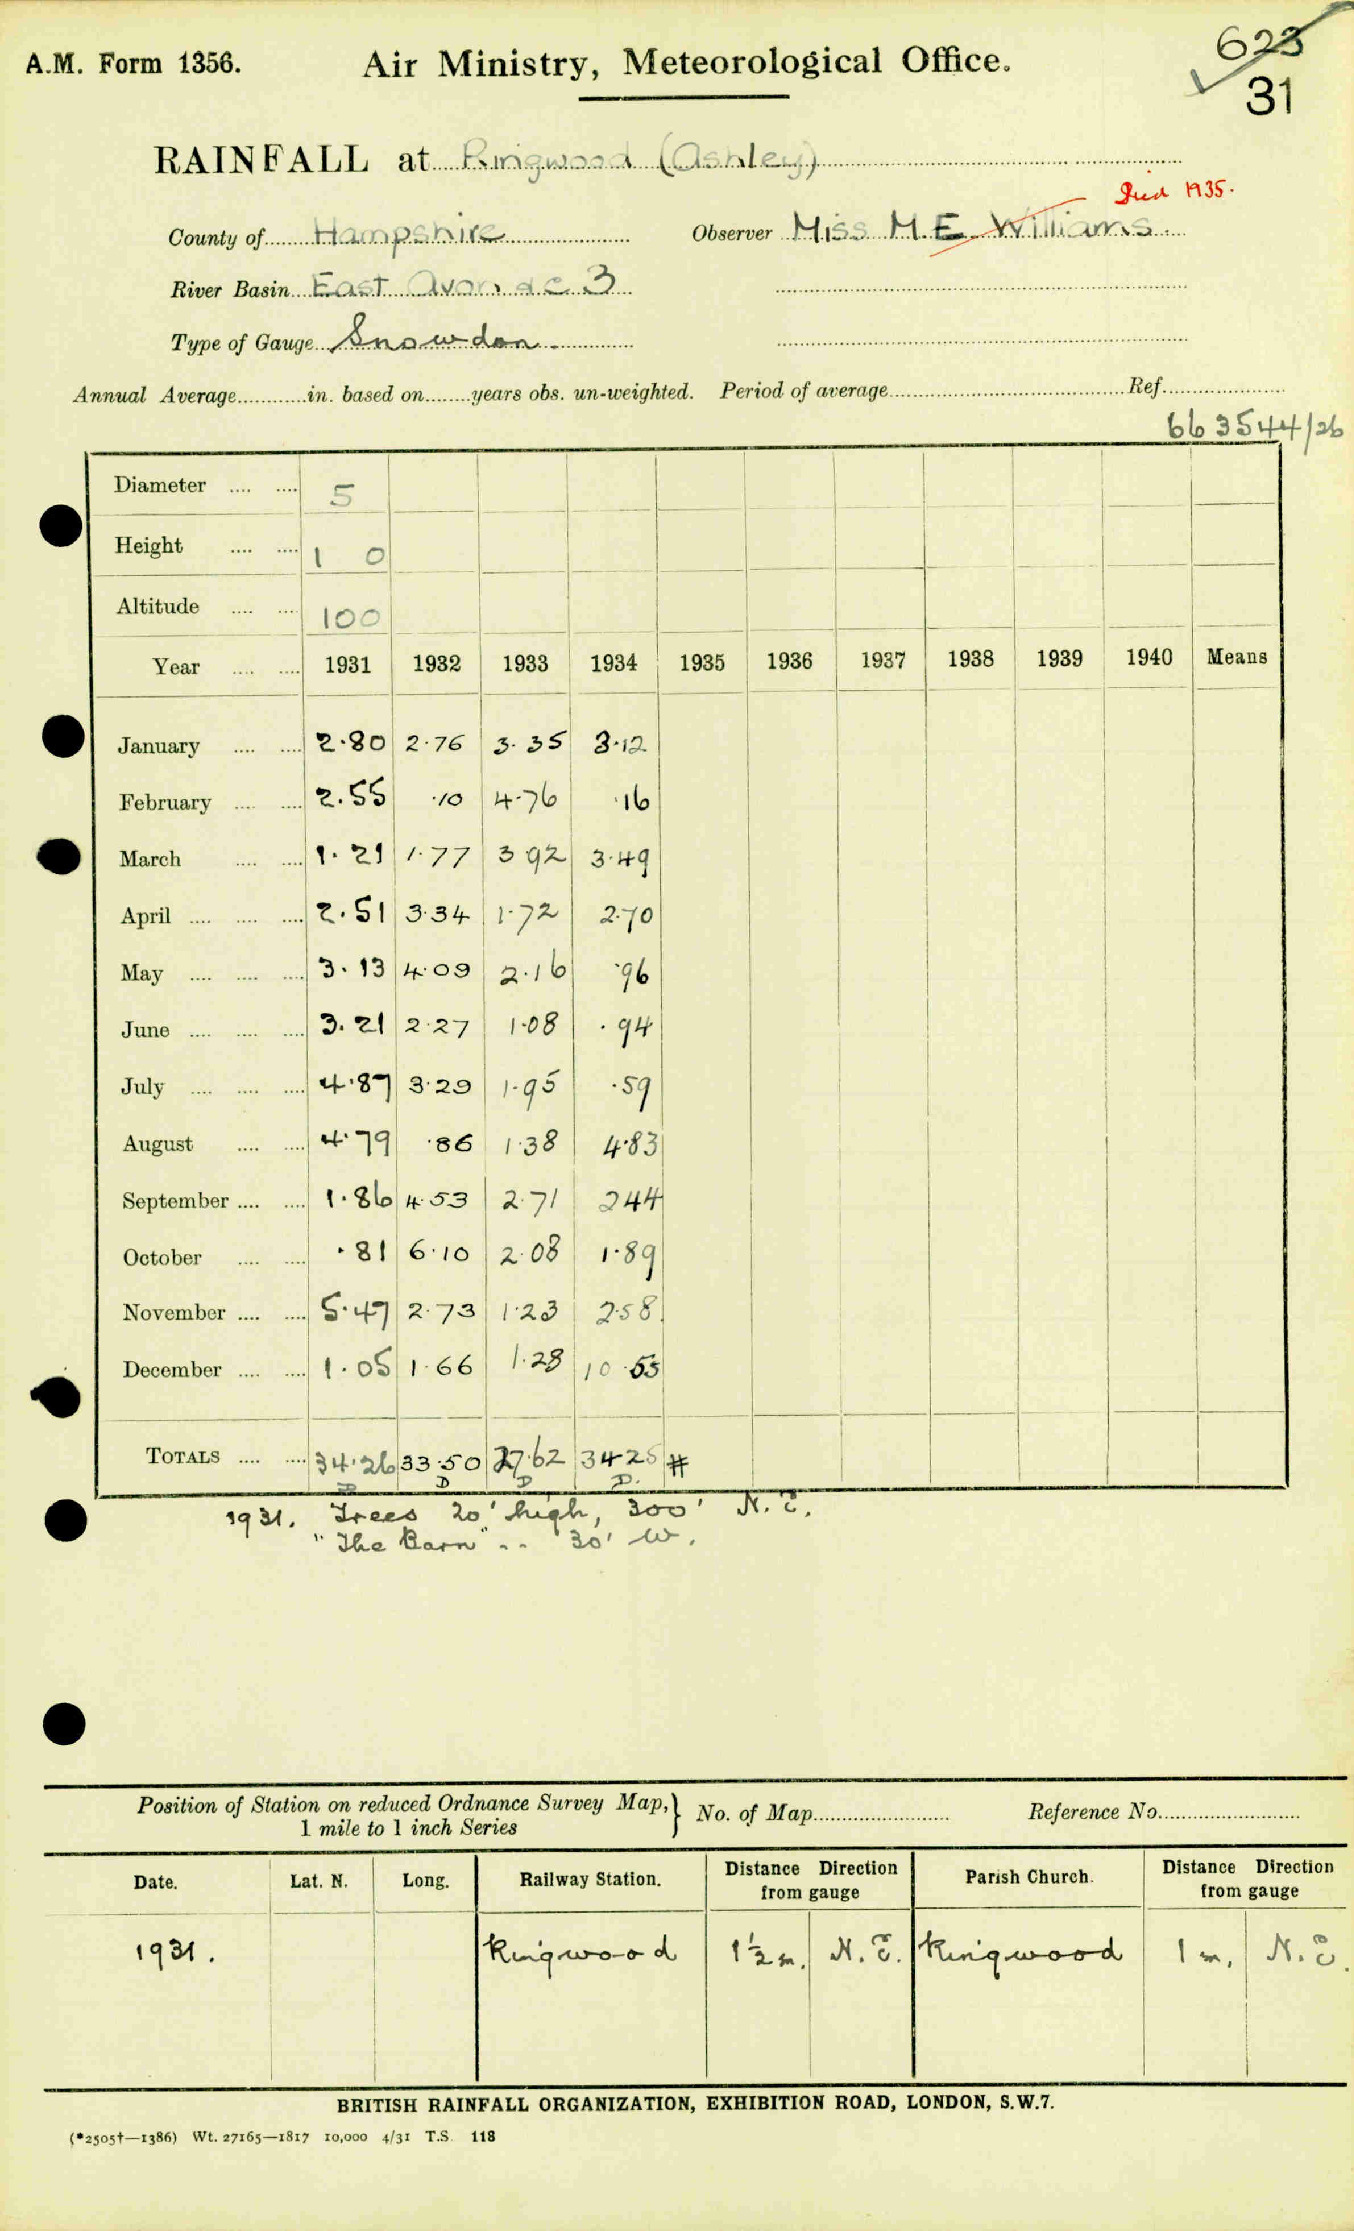 A.M. Form 1356.
Air Ministry, Meteorological Office.
623
31
RAINFALL at Ringwood (Ashley)
Died 1935.
County of Hampshire Observer Miss M.E. Williams
River Basin East Avon &c 3
Type of Gauge Snowdon
Annual Average in. based on years obs. un-weighted. Period of average Ref.
663544/26
Diameter 5
Height 1 0
Altitude 100
Year 1931 1932 1933 1934 1935 1936 1937 1938 1939 1940 Means
January 2.80 2.76 3.35 3.12
February 2.55 .10 4.76 .16
March 1.21 1.77 3 92 3.49
April 2.51 3.34 1.72 2.70
May 3.13 4.09 2.16 .96
June 3.21 2.27 1.08 .94
July 4.87 3.29 1.95 .59
August 4.79 .86 1.38 4.83
September 1.86 4.53 2.71 2 44
October .81 6.10 2.08 1.89
November 5.47 2.73 1.23 2.58
December 1.05 1.66 1.28 10.55
TOTALS 34.26 33.50 27.62 34 25 #
D D D D.
1931. Trees 20' high, 300' N.E.
"The Barn" .. 30' W.
Position of Station on reduced Ordnance Survey Map,} No. of Map Reference No.
1 mile to 1 inch Series
Date. Lat. N. Long. Railway Station. Distance Direction from gauge Parish Church. Distance Direction from gauge
1931. Ringwood 1½ m. N.E. Ringwood 1 m. N.E.
BRITISH RAINFALL ORGANIZATION, EXHIBITION ROAD, LONDON, S.W.7.
(*2505†—1386) Wt. 27165—1817 10,000 4/31 T.S. 118